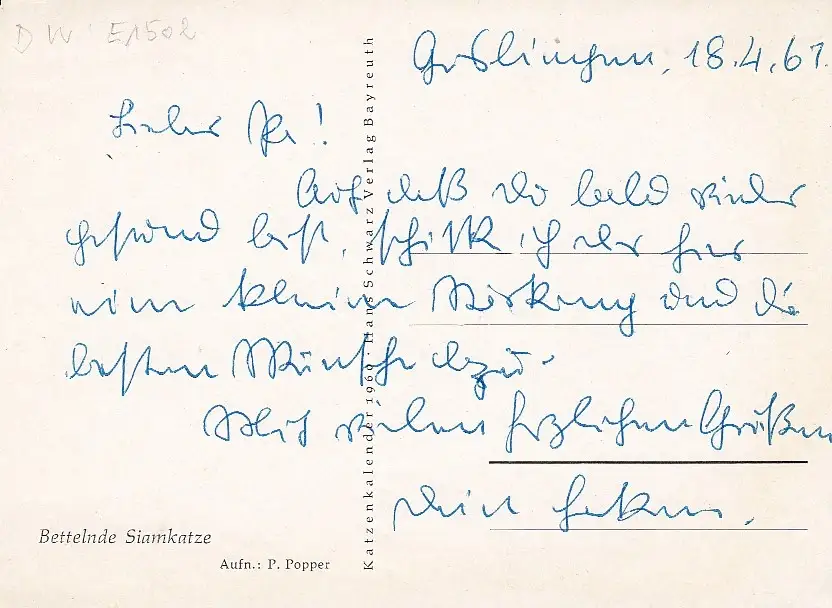 DW E1502
Geislingen, 18.4.61.
Lieber !
Auf daß Du bald wieder
gesund bist, schick ich dir hier
eine kleine Stärkung und die
besten Wünsche dazu.
Mit vielen herzlichen Grüßen
Dein
Bettelnde Siamkatze
Aufn.: P. Popper
Katzenkalender 1960 · Hans Schwarz Verlag Bayreuth